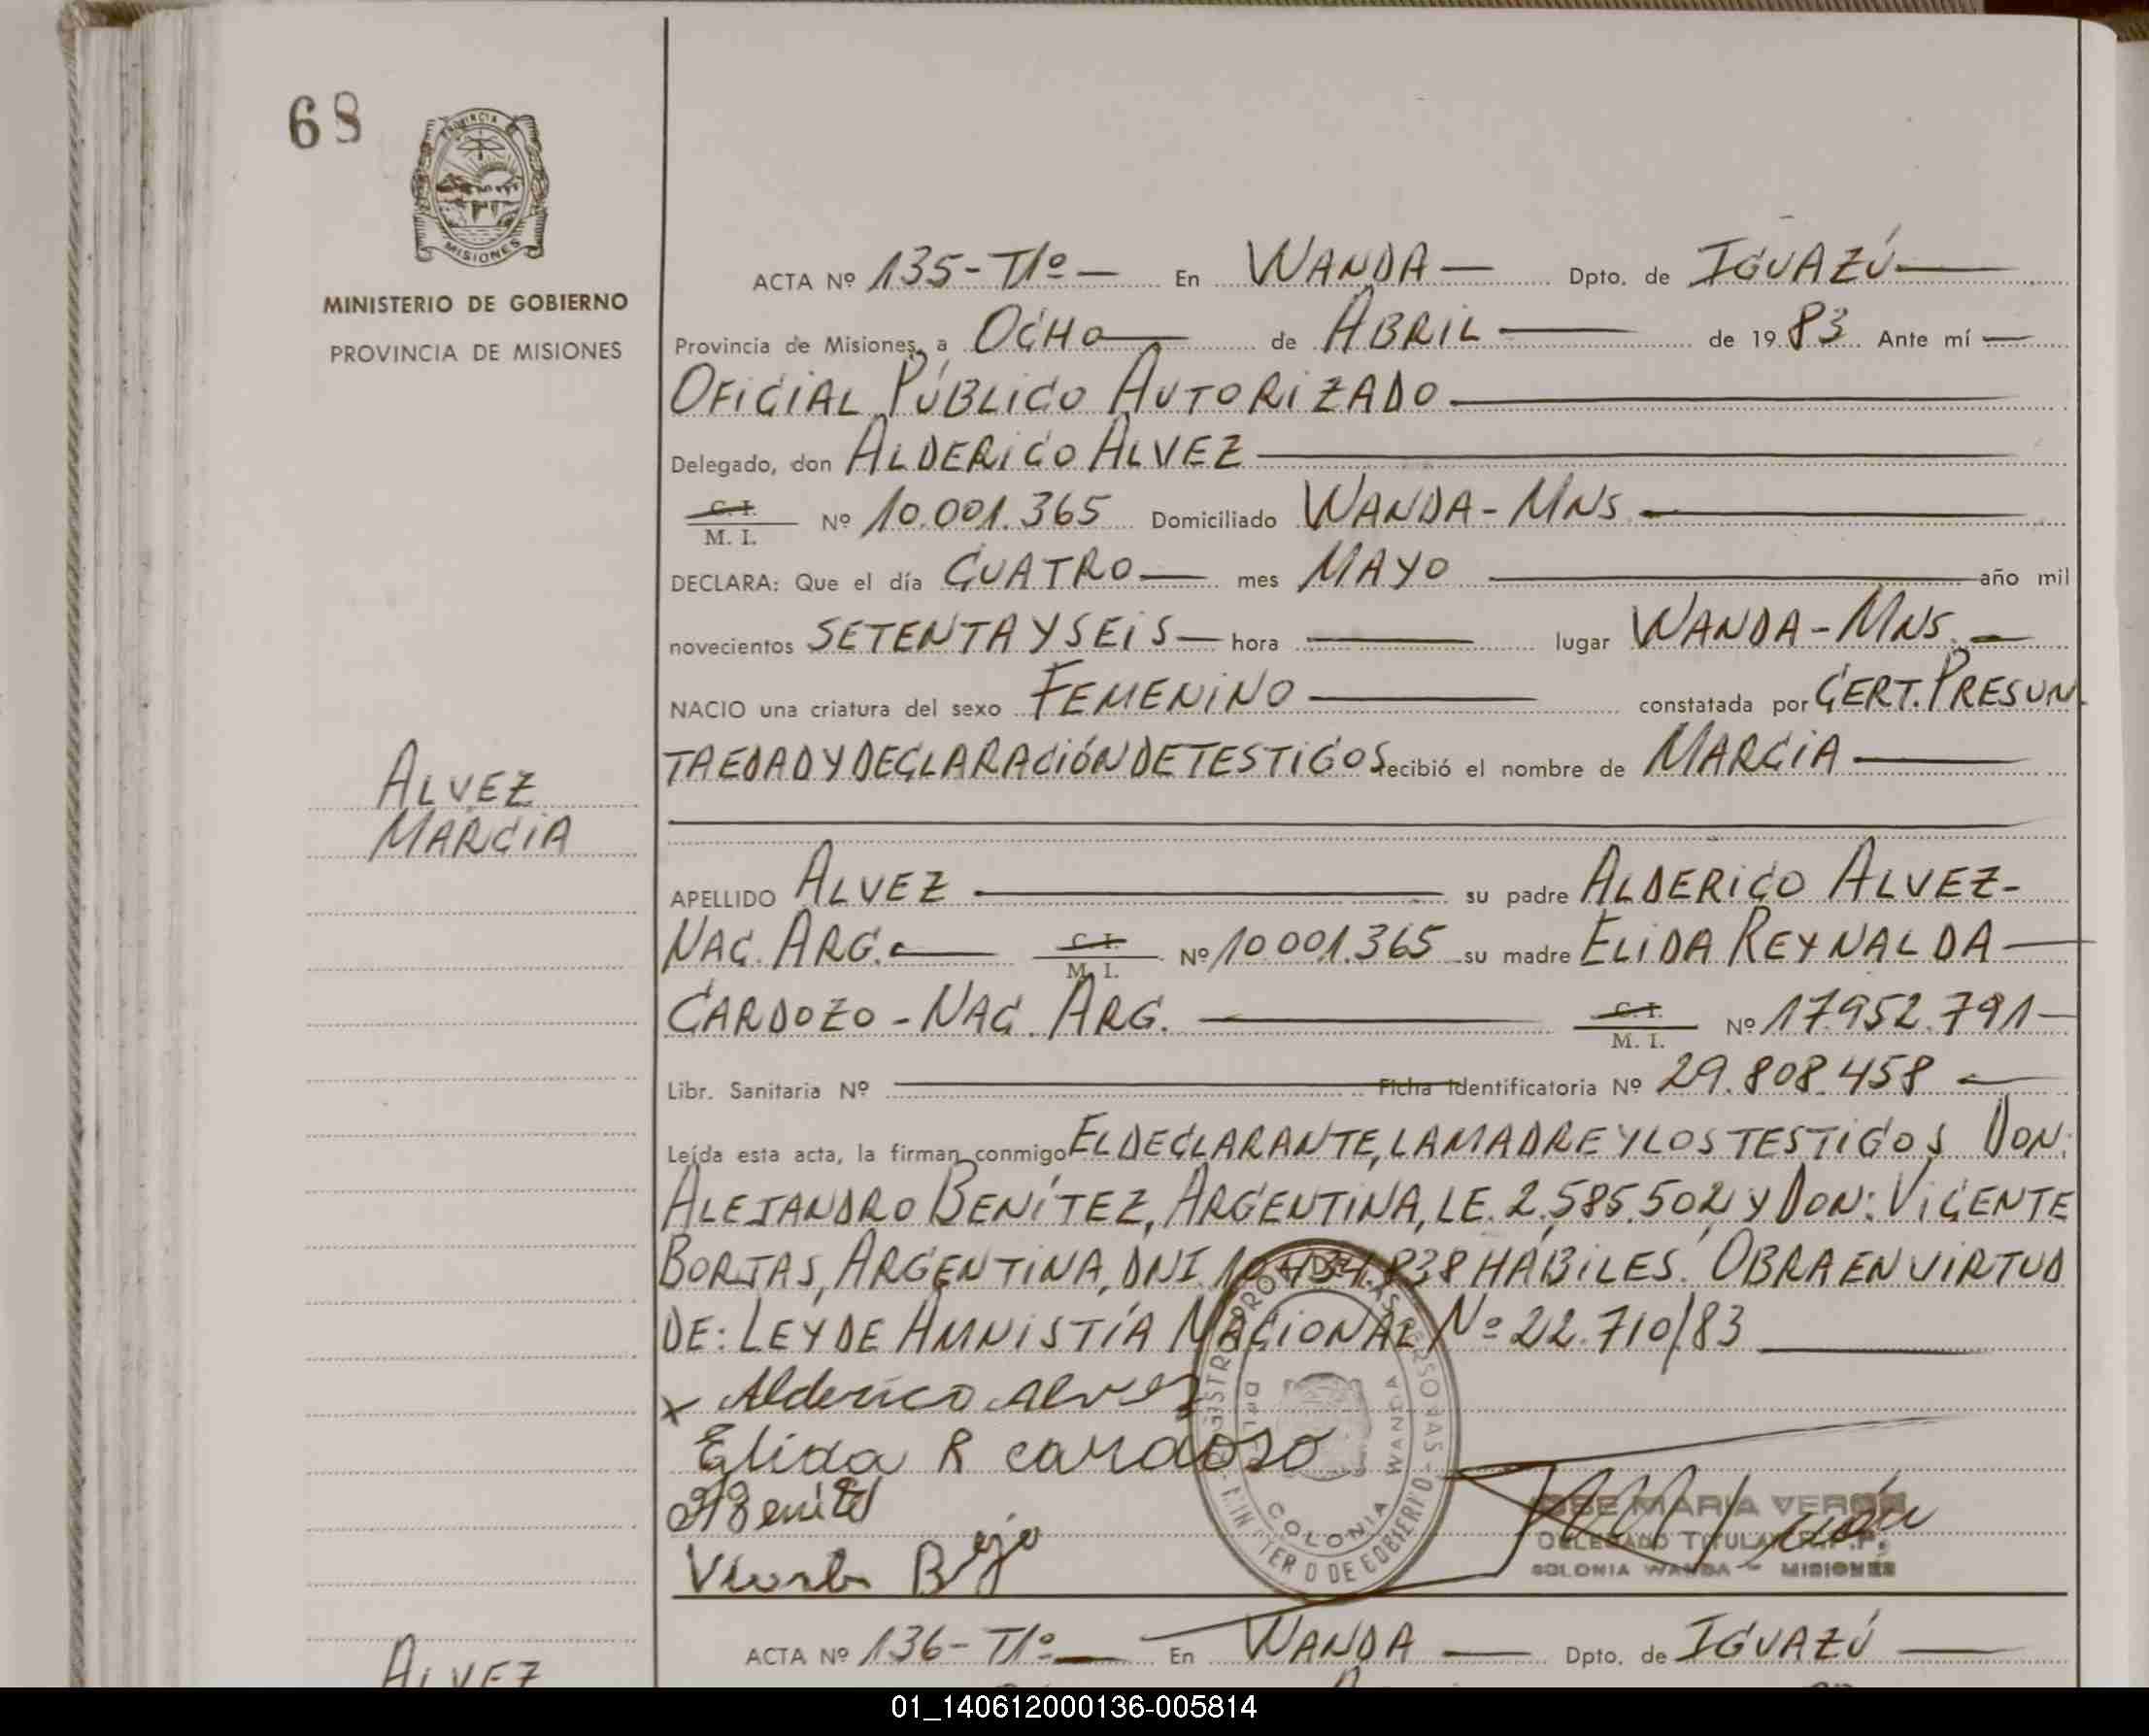 68
PROVINCIA DE
MISIONES
MINISTERIO DE GOBIERNO
PROVINCIA DE MISIONES
ALVEZ
MARCIA
ALVEZ
ACTA Nº 135-Tº1º- En WANDA- Dpto. de IGUAZÚ
Provincia de Misiones, a OCHO de ABRIL de 1983 Ante mí
OFICIAL PÚBLICO AUTORIZADO
Delegado, don ALDERICO ALVEZ
C. I.
M. I. Nº 10.001.365 Domiciliado WANDA-MNS
DECLARA: Que el día CUATRO mes MAYO año mil
novecientos SETENTA Y SEIS hora lugar WANDA-MNS.
NACIO una criatura del sexo FEMENINO constatada por CERT. PRESUN
TA EDAD Y DECLARACIÓN DE TESTIGOS recibió el nombre de MARCIA
APELLIDO ALVEZ su padre ALDERICO ALVEZ-
NAC. ARG. C. I. M. I. Nº 10.001.365 su madre ELIDA REYNALDA
CARDOZO-NAC. ARG. C. I. M. I. Nº 17.952.791
Libr. Sanitaria Nº Ficha Identificatoria Nº 29.808.458
Leída esta acta, la firman conmigo EL DECLARANTE, LA MADRE Y LOS TESTIGOS DON:
ALEJANDRO BENÍTEZ, ARGENTINA, LE. 2.585.502 Y DON: VICENTE
BORJAS, ARGENTINA, DNI. 838 HÁBILES. OBRA EN VIRTUD
DE: LEY DE AMNISTÍA NACIONAL Nº 22.710/83
x Alderico Alvez
Elida R cardoso
Benitez
JOSE MARIA VERON
DELEGADO TITULAR R.P.P.
COLONIA WANDA - MISIONES
COLONIA WANDA
MINISTERIO DE GOBIERNO
ACTA Nº 136-Tº1º En WANDA Dpto. de IGUAZÚ
01_140612000136-005814